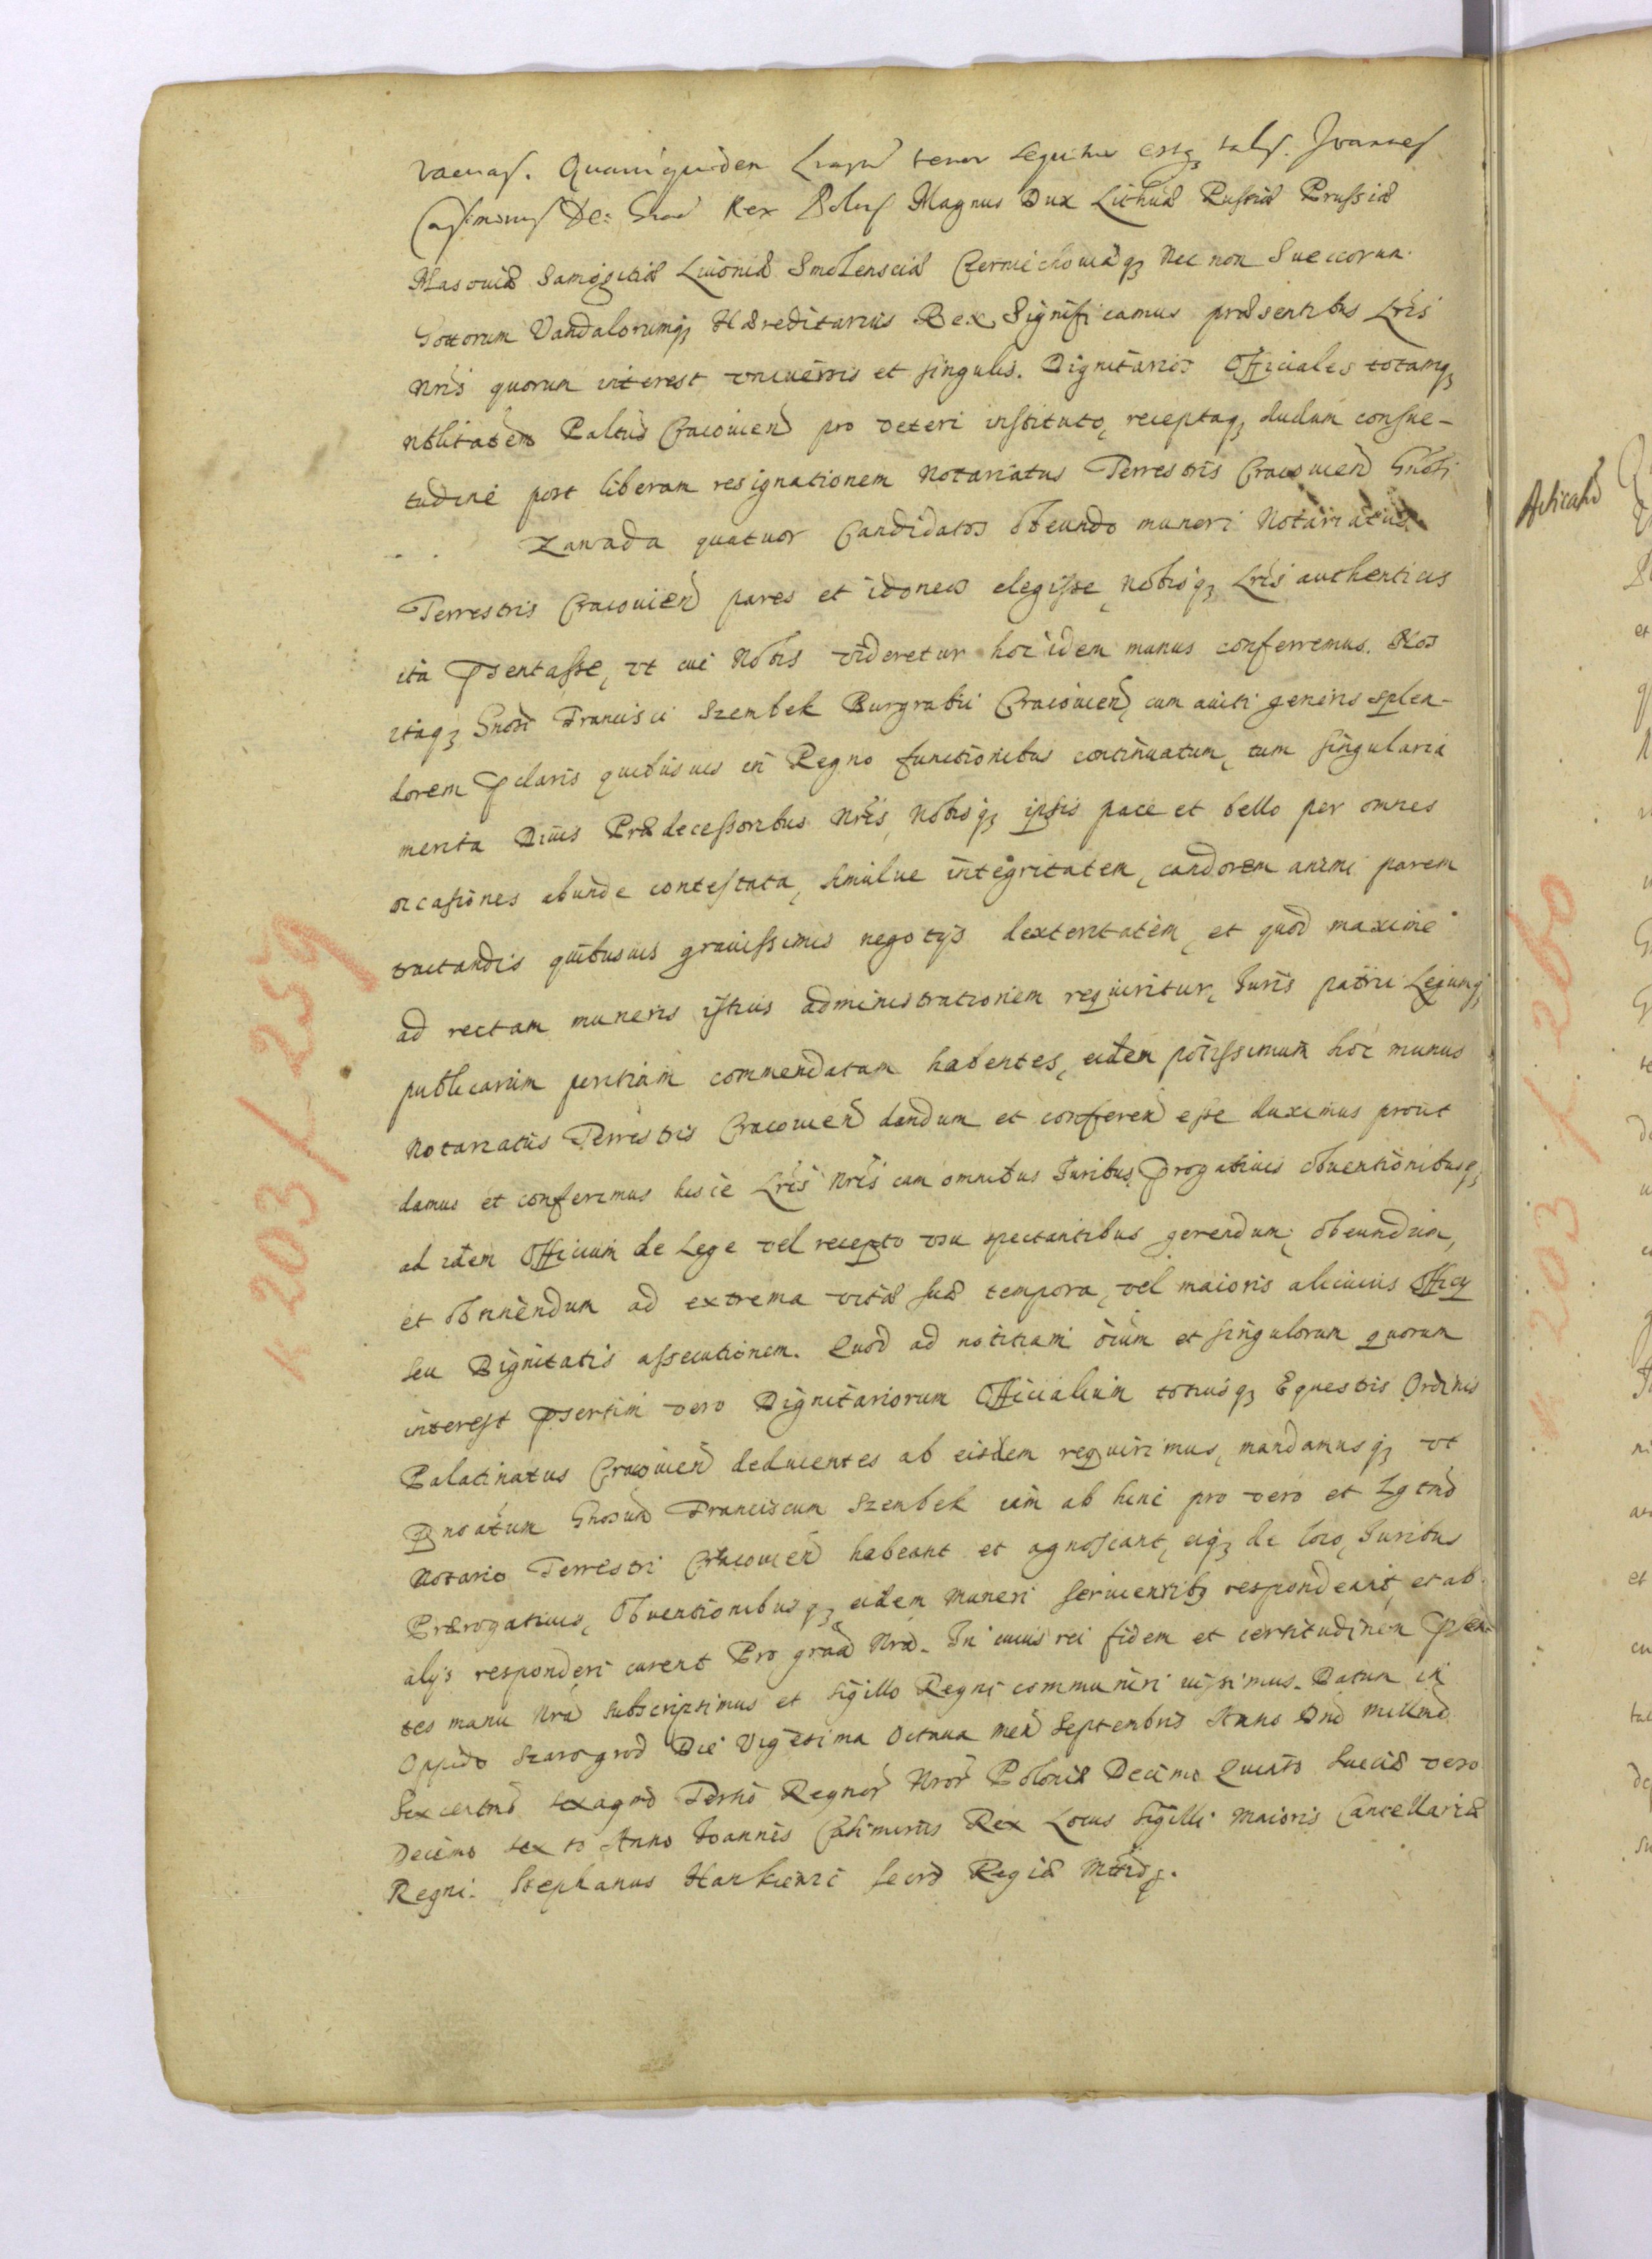 vacuas. Quarumquidem Lrarum tenor sequitur estq3 talis. Joannes
Casimirus Dei Gratia Rex Polus Magnus Dux Lithuæ Russiæ Prussiæ
Masouiæ Samogitiæ Liuoniæ Smolensciæ Czerniechouiæq3 Nec non Sueccorum
Gottorum Vandalorumq3 Hæreditarius Rex Significamus præsentibus Lris
Nris quorum interest vniuersis et singulis. Dignitarios Officiales totamq3
nblitatem Paltus Cracouien pro veteri instituto, receptaq3 dudum consue-
tudine post liberam resignationem Notariatus Terrestris Cracouien Gnosi
Zawada quatuor Candidatos obeundo muneri Notariatus
Terrestris Cracouien pares et idoneos elegisse, Nobisq3 Lris authenticis
ita pntasse, vt cui Nobis videretur hoc idem munus conferremus. Nos
itaq3 Gnosi Francisci Szembek Burgrabii Cracouien, cum auiti generis splen-
dorem pclaris quibusuis in Regno functionibus continuatum, tum singularia
merita Diuis Prædecessoribus Nris, Nobisq3 ipsis pace et bello per omnes
occasiones abunde contestata, simulue integritatem, candorem animi parem
tractandis quibusuis grauissimis negotijs dexteritatem, et quod maxime
ad rectam muneris istius administrationem requiritur, Juris patrii Legumq3
publicarum peritiam commendatam habentes, eidem potissimum hoc munus
Notariatus Terrestris Cracouien dandum et conferen esse duximus prout
damus et conferimus hisce Lris Nris cum omnibus Juribus, progatiuis obuentionibusq3
ad idem Officium de Lege vel recepto vsu spectantibus gerendum, obeundum,
et obtinendum ad extrema vitæ suæ tempora, vel maioris alicuius Officij
seu Dignitatis assecutionem. Quod ad notitiam oium et singulorum quorum
interest psertim vero Dignitariorum Officialium totiusq3 Equestris Ordinis
Palatinatus Cracouien deducentes ab eisdem requirimus, mandamusq3 vt
pnoatum Gnosum Franciscum Szembek iam ab hinc pro vero et Lgtmo
Notario Terrestri Cracouien habeant et agnoscant, eiq3 de loco, Juribus
Prærogatiuis, Obuentionibusq3 eidem muneri seruientib3 respondeant, et ab
alijs responderi curent Pro graa Nra. In cuius rei fidem et certitudinem psen-
tes manu Nra subscripsimus et sigillo Regni communiri iussimus. Datum in
Oppido Szarogrod Die Vigesima Octaua men Septembris Anno Dni Millmo
Sexcentmo sexagmo Tertio Regnor Nror Poloniæ Decimo Quinto Sueciæ vero
Decimo sexto Anno Joannes Casimirus Rex Locus sigilli Maioris Cancellariæ
Regni. Stephanus Hankiewic Secrs Regiæ Mttis.
k 203 / 259
k 203 / 260